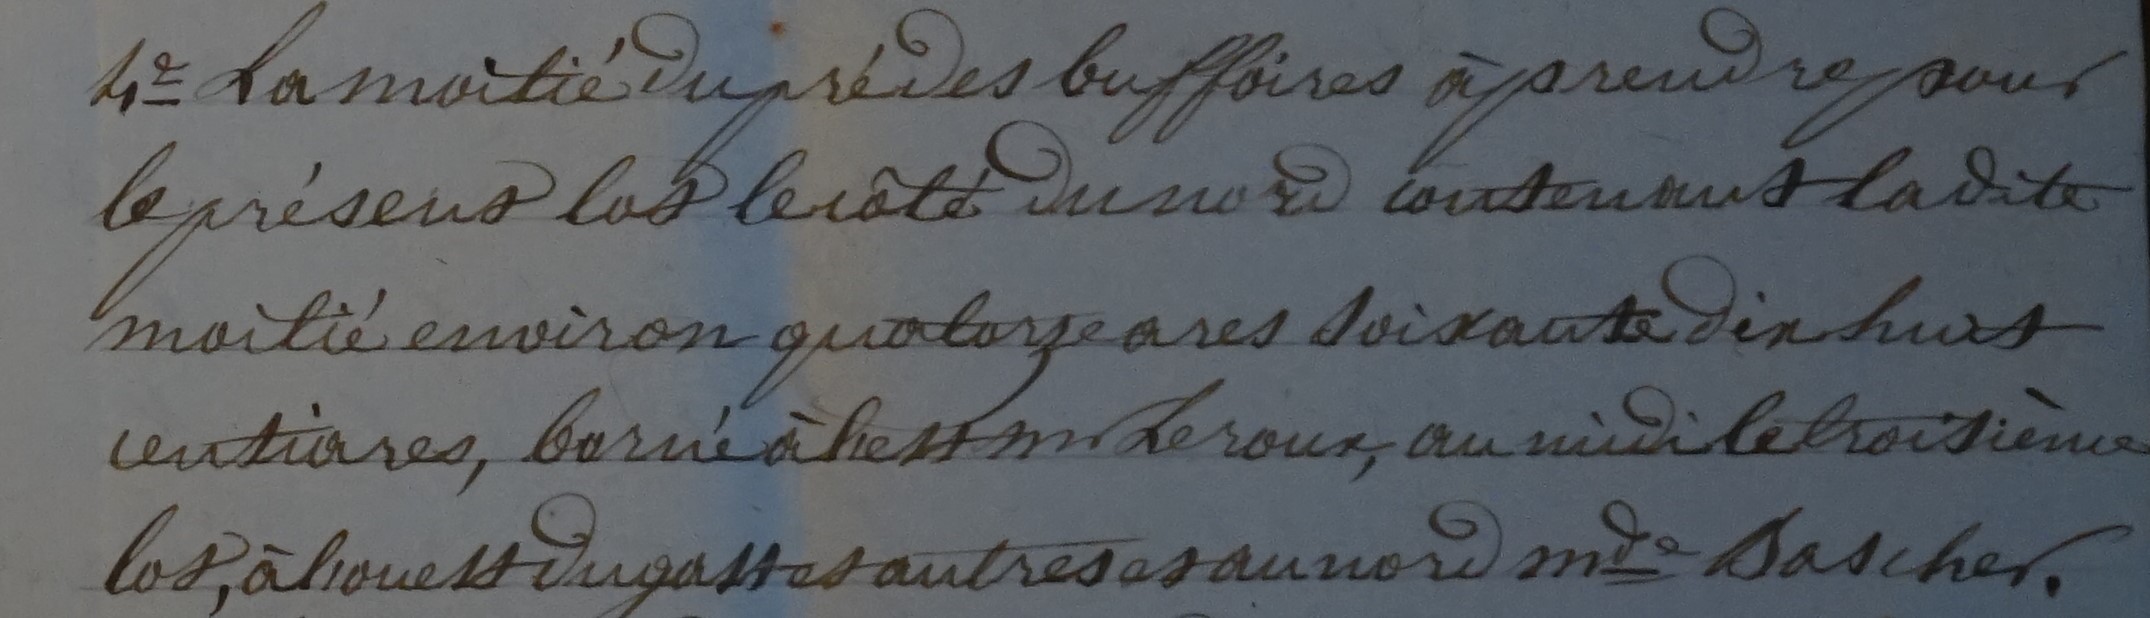 4º La moitié du pré des buffoires à prendre pour
le présent lot le côté du nord contenant la dite
moitié environ quatorze ares soixante dix huit
centiares, borné à l'est mr Leroux, au midi le troisième
lot, à l'ouest Dugast et autres et au nord mde Bascher.